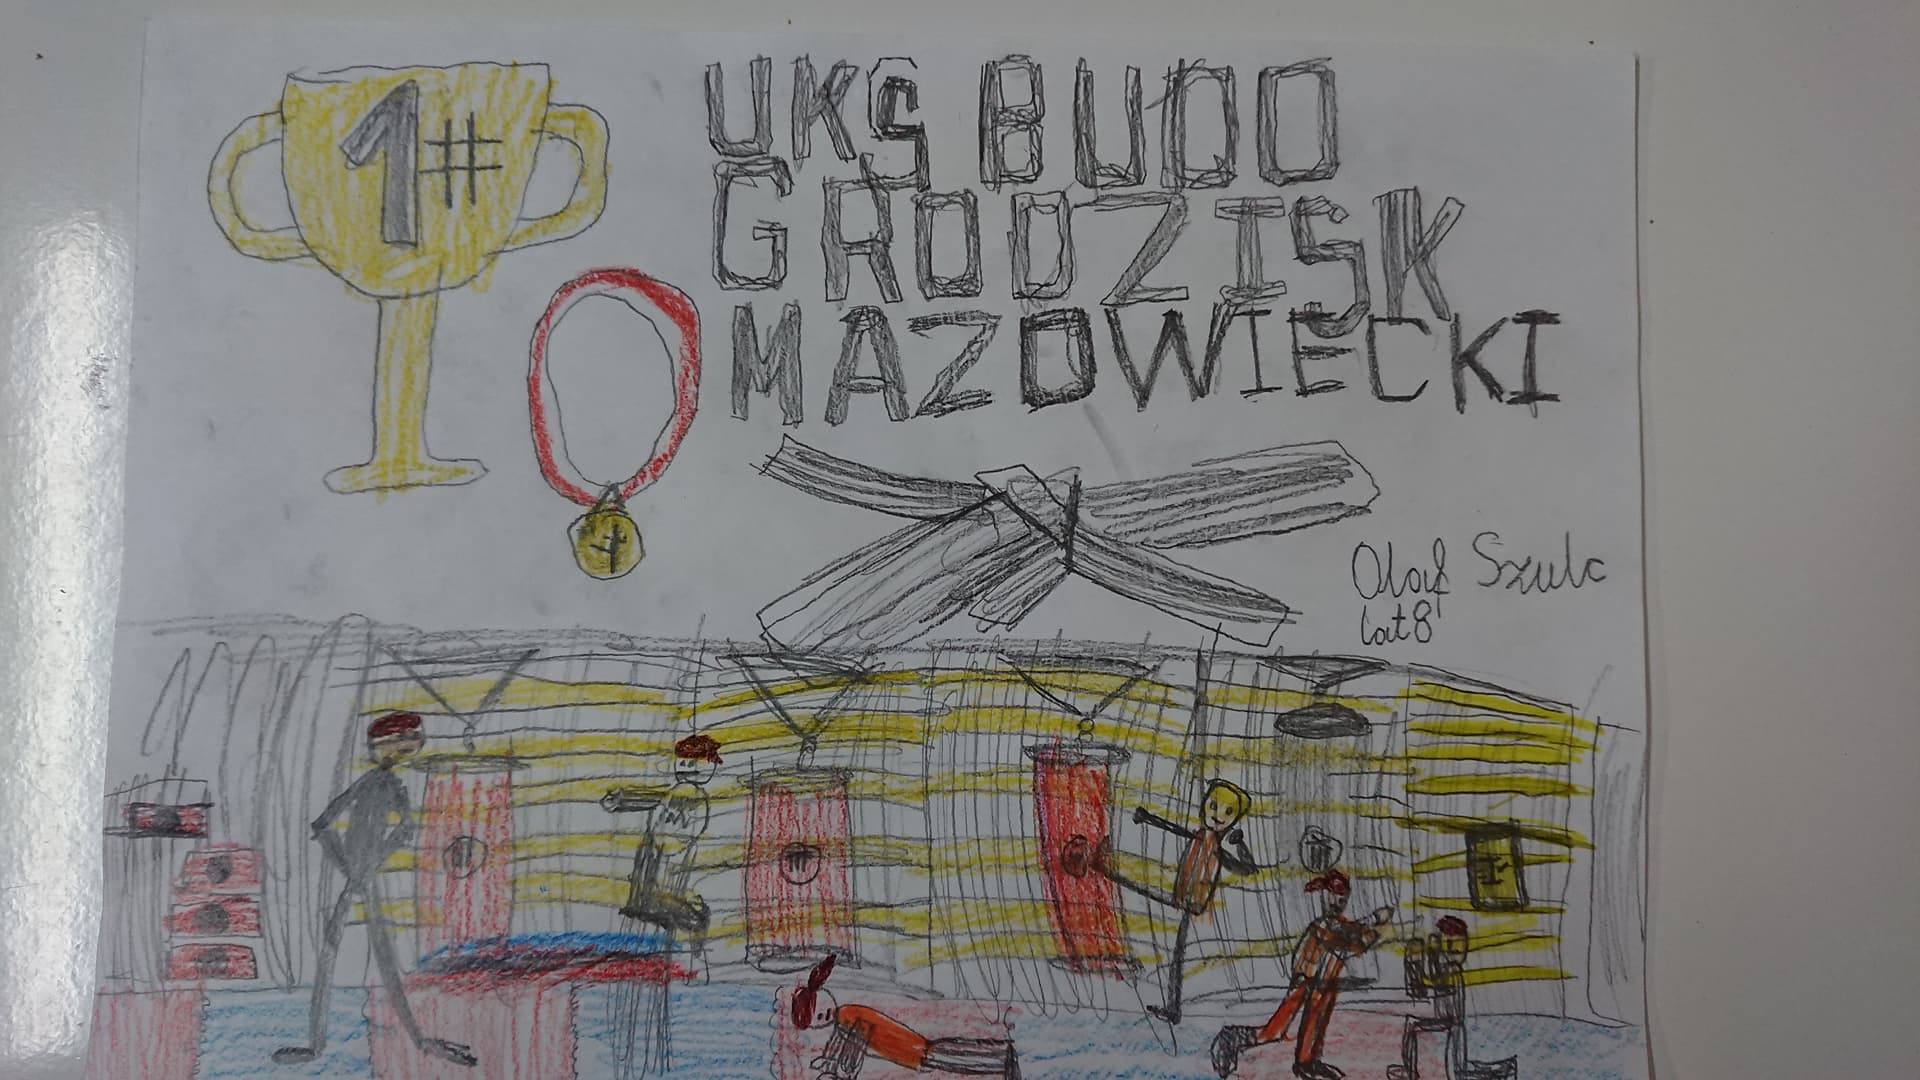 1#
UKS BUDO
GRODZISK
MAZOWIECKI
1
Olaf Szulc
lat 8